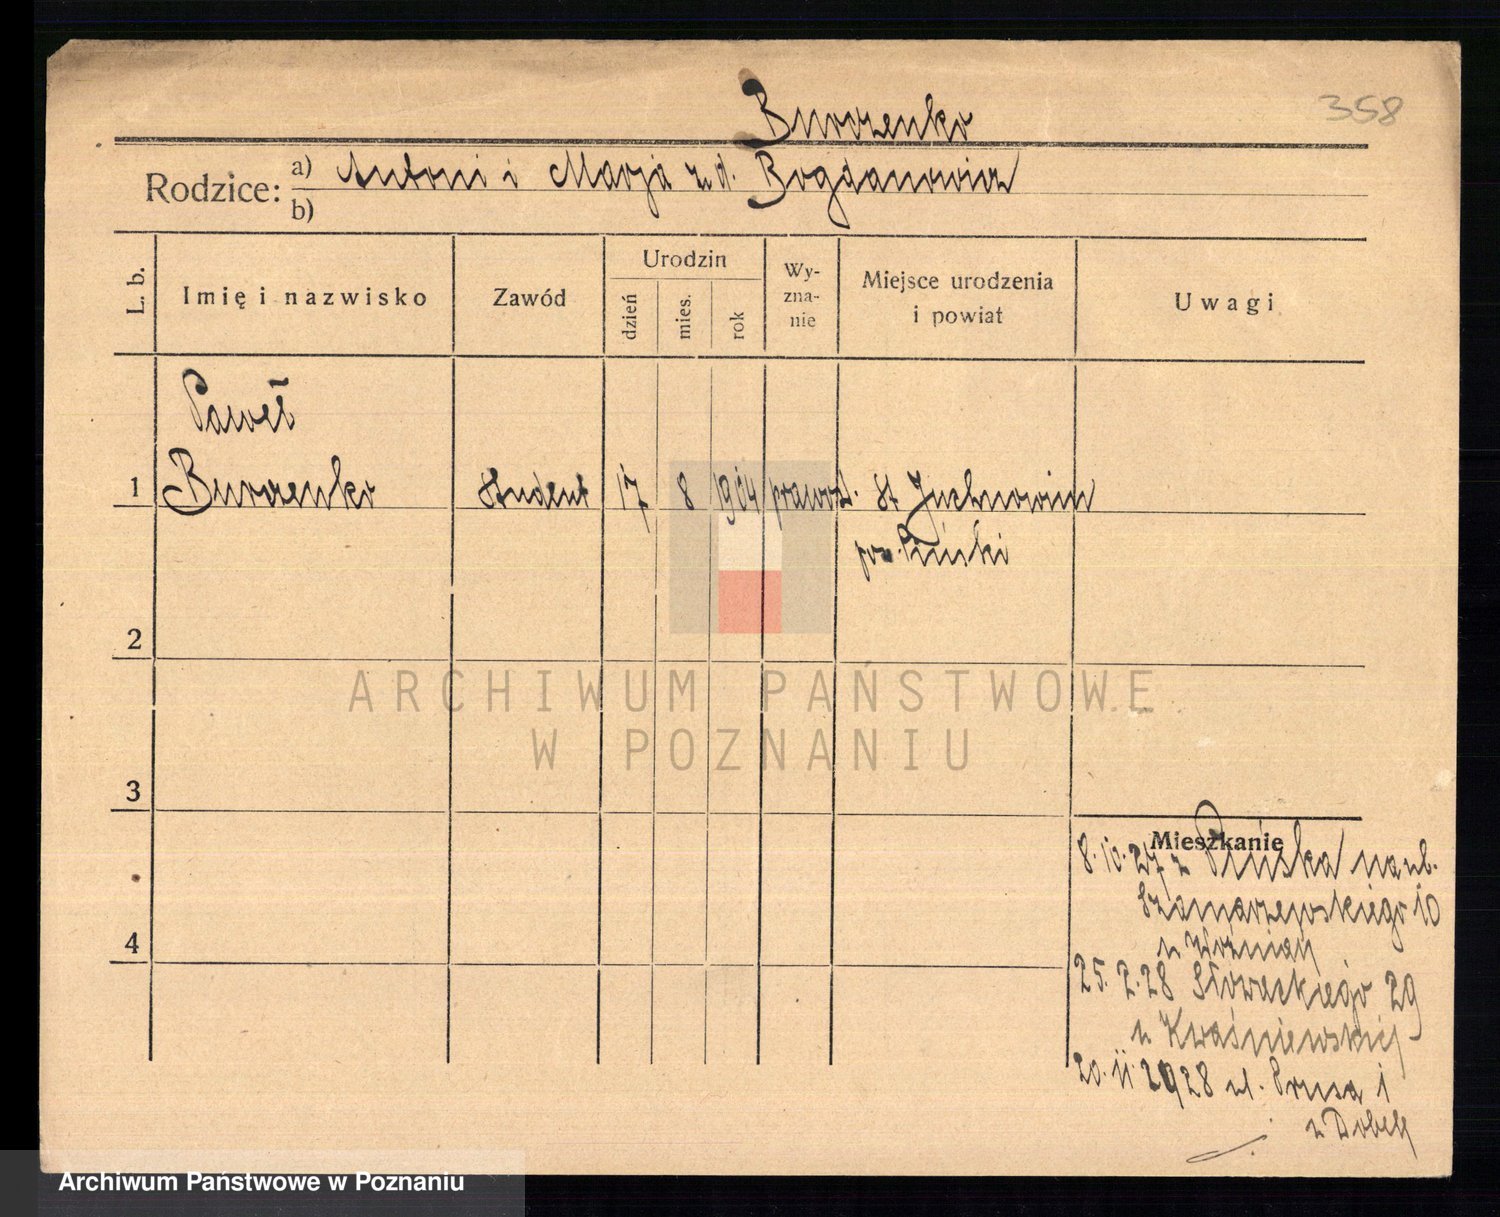 358
Burzenko
Rodzice: a) Antoni i Marja z d. Bogdanowicz
b)
L. b.
Imię i nazwisko
Zawód
Urodzin
dzień
mies.
rok
Wy-
zna-
nie
Miejsce urodzenia
i powiat
Uwagi
Paweł
1 Burzenko student 17 8 1904 prawosł. st Juchnowicze
pow. Piński
2
ARCHIWUM PAŃSTWOWE
W POZNANIU
3
Mieszkanie
8.10.27 z Pińska na ul.
Szamarzewskiego 10
u Woźniak
4
25.2.28 Słowackiego 29
u Kwaśniewskiej
20.11.1928 ul. Prusa 1
Archiwum Państwowe w Poznaniu